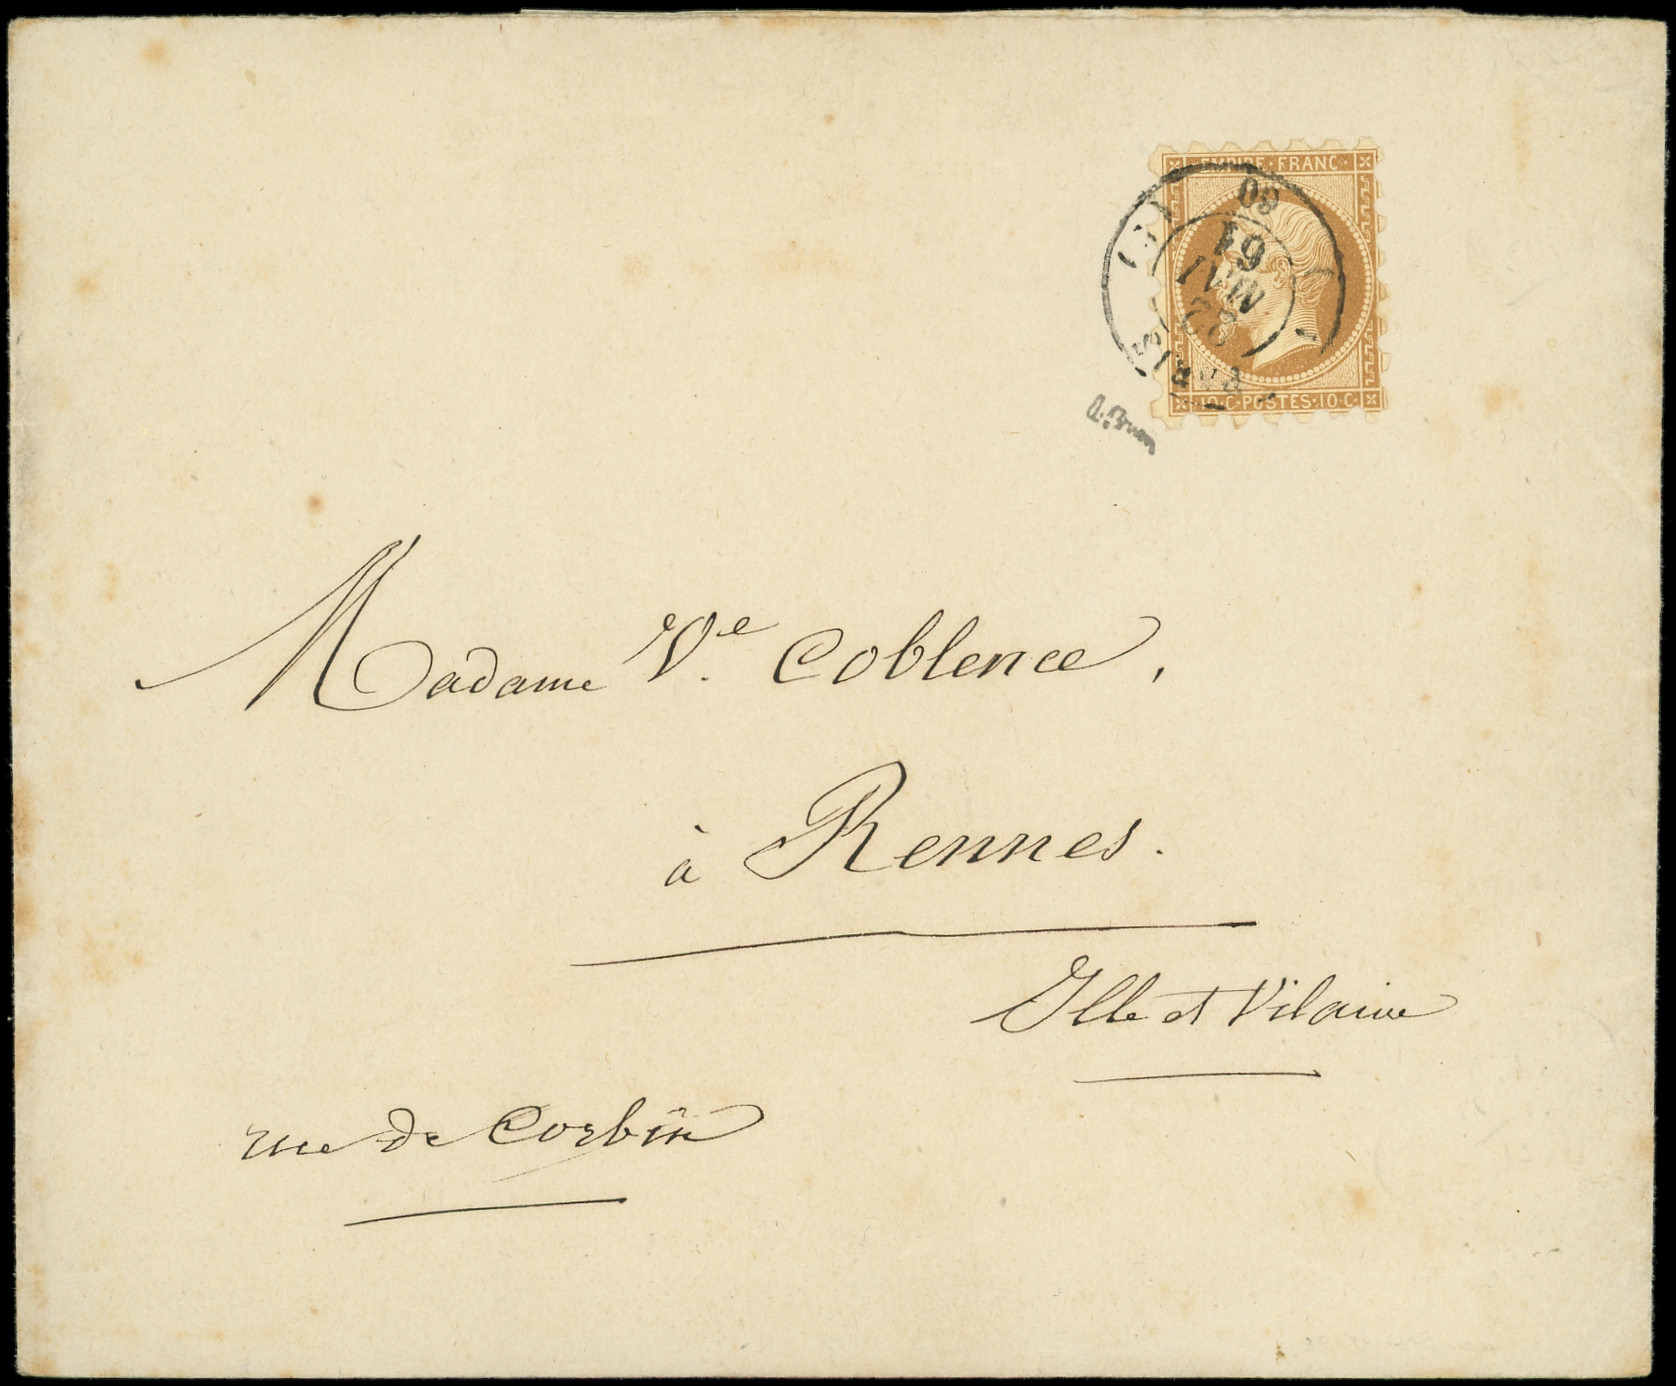 EMPIRE · FRANC ·
10 · C · POSTES · 10 · C ·
PARIS
22
MAI
61
60
Madame Vᵉ. Coblence,
à Rennes.
Ille et Vilaine
rue de Corbin